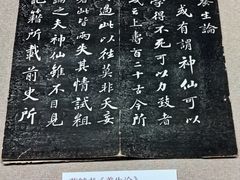 養生論
或有謂神仙可以
學得不死可以力致者
或云上壽百二十古今所
過此以往莫非妖妄
此皆兩失其情試粗
論之夫神仙雖不目見
記籍所載前史所